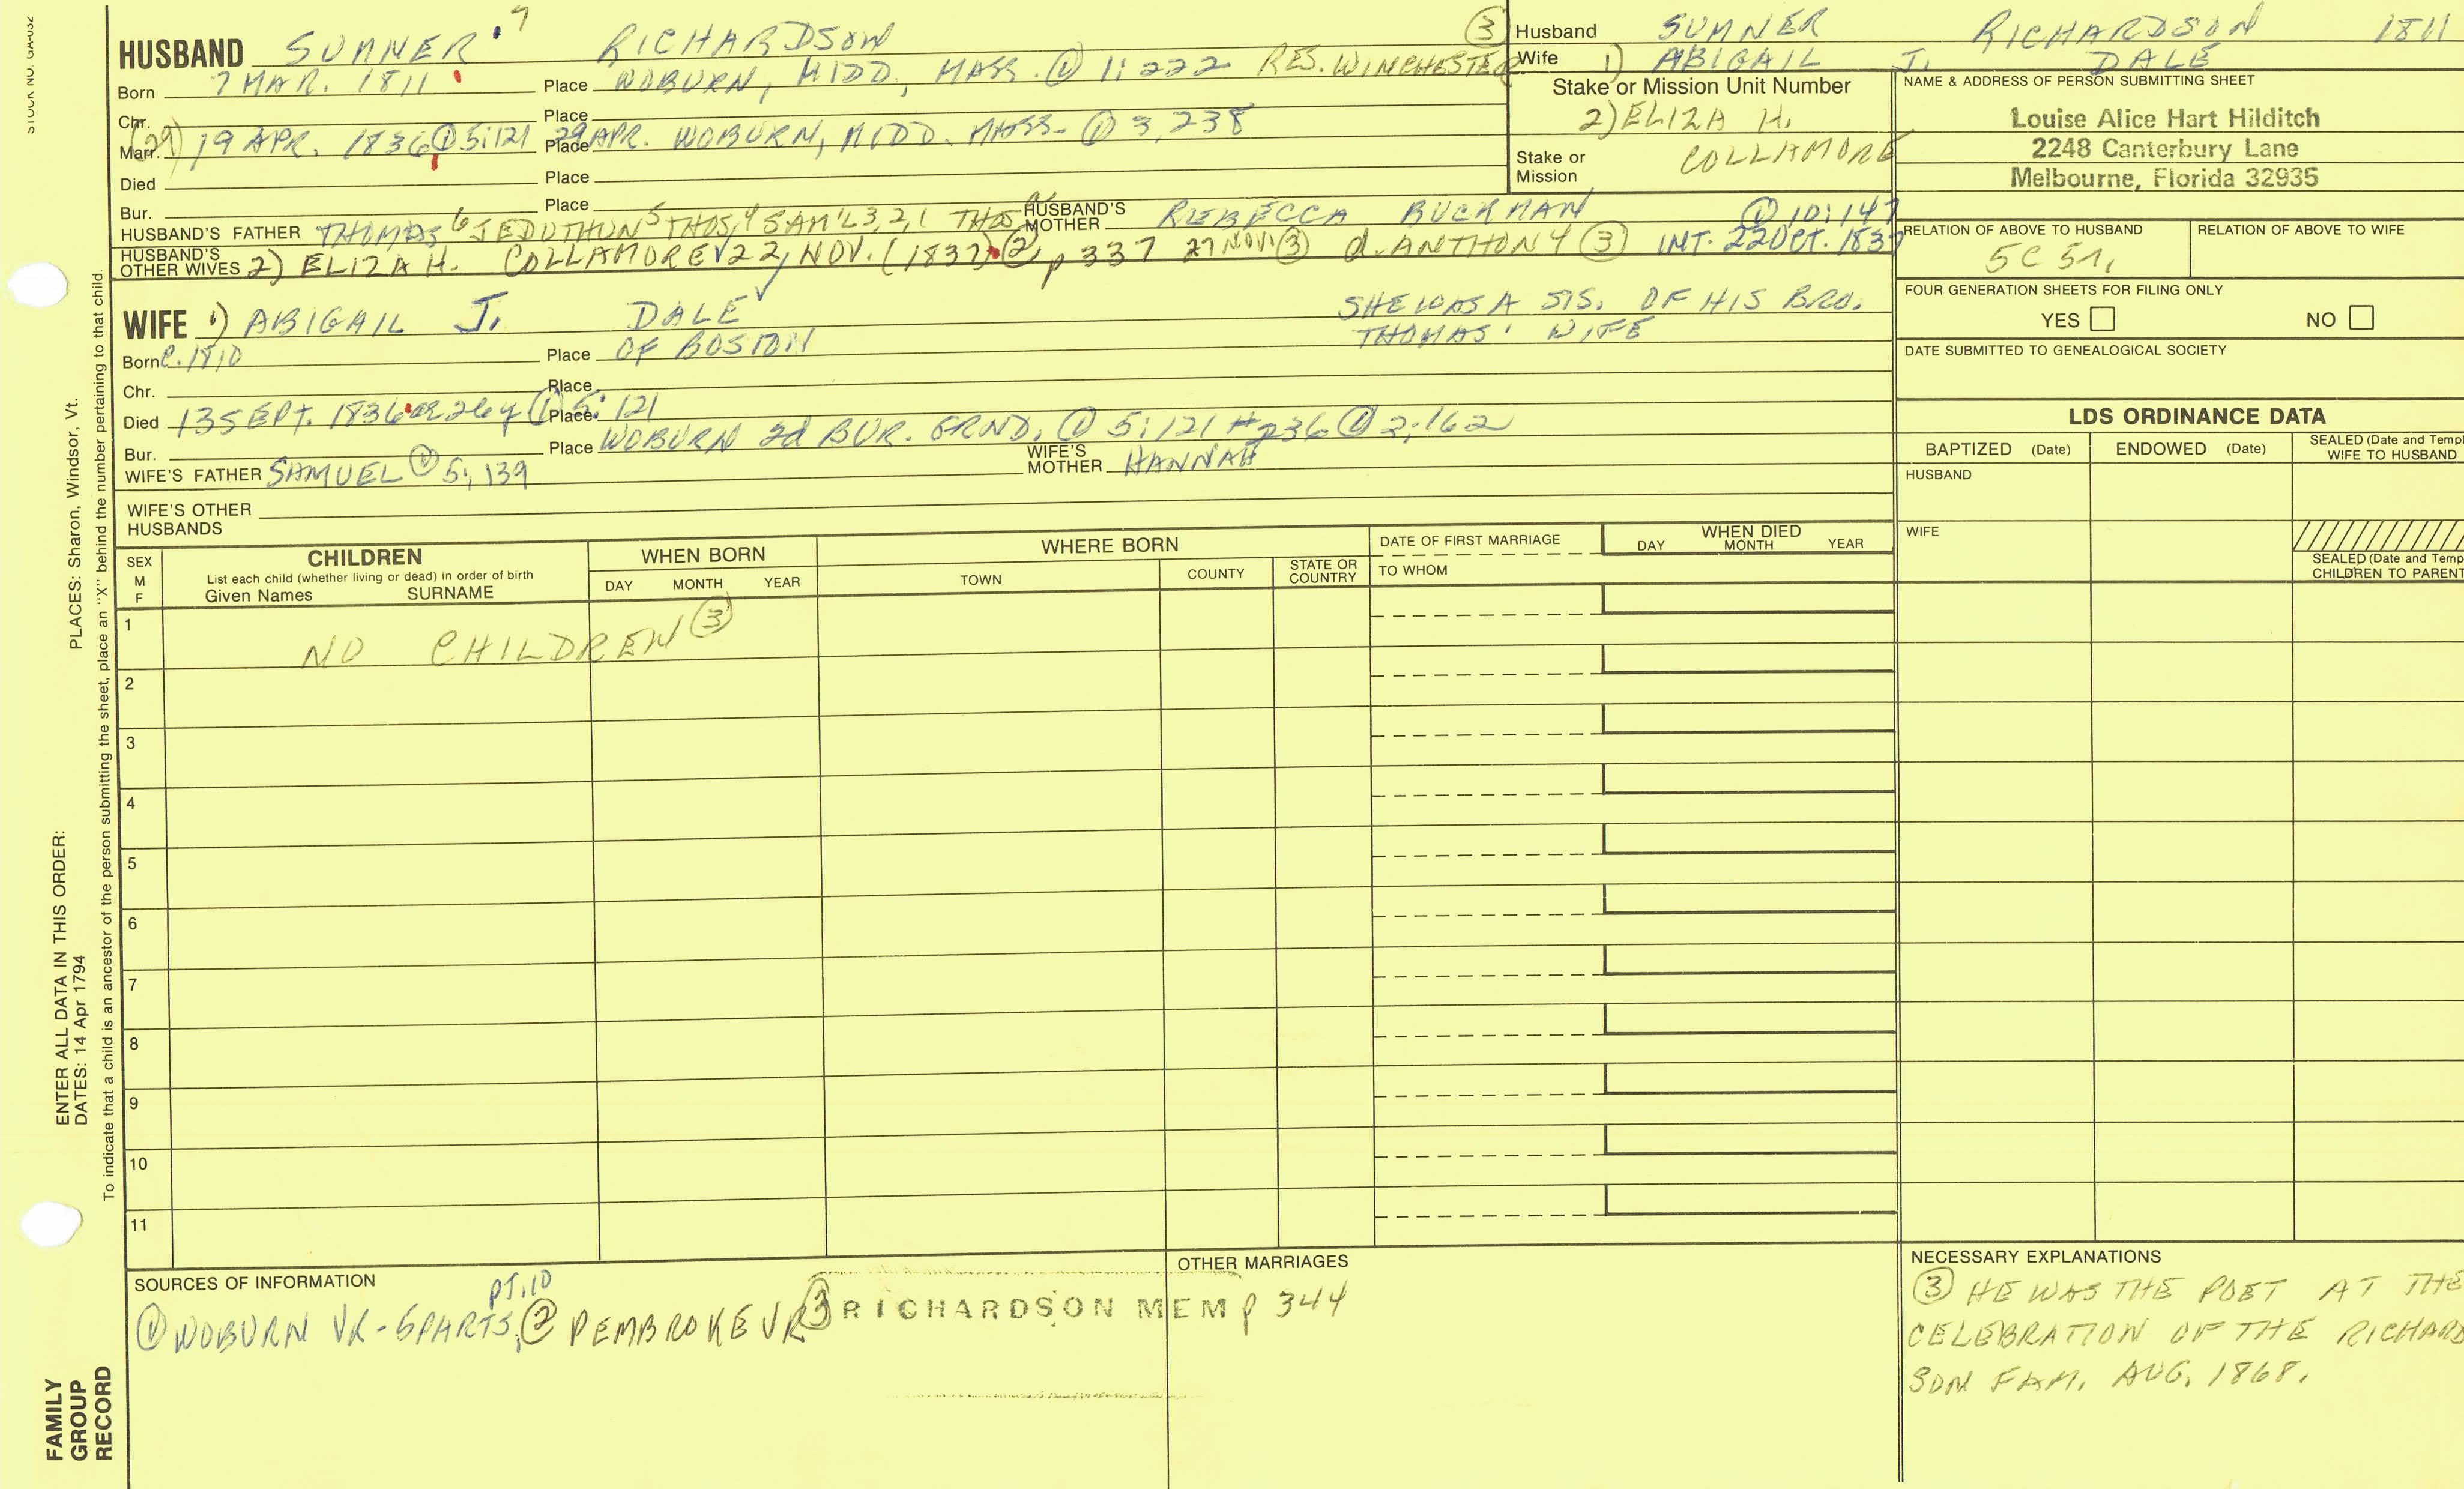 STOCK NO. GA-032
HUSBAND SUMNER 7 RICHARDSON
Born 7 MAR. 1811 Place WOBURN, MIDD, MASS. ① 1:222 RES. WINCHESTER ③
Chr. Place
Marr. (29) 19 APR. 1836 ① 5:121 Place 29 APR. WOBURN, MIDD. MASS. ① 3,238
Died Place
Bur. Place
HUSBAND'S FATHER THOMAS, 6 JEDUTHUN 5 THOS, 4 SAM'L 3,2,1 THOS HUSBAND'S MOTHER REBECCA BUCKMAN ① 10:147
HUSBAND'S OTHER WIVES 2) ELIZA H. COLLAMORE 22, NOV. (1837) ② p 337 27 NOV. ③ d. ANTHONY ③ INT. 22 OCT. 1837
WIFE 1) ABIGAIL J. DALE SHE WAS A SIS. OF HIS BRO.
THOMAS' WIFE
Born C. 1810 Place OF BOSTON
Chr. Place
Died 13 SEPT. 1836 ae 26 y ① 5:121 Place
Bur. Place WOBURN 2d BUR. GRND. ① 5:121 #236 ① 2:162
WIFE'S FATHER SAMUEL ① 5:139 WIFE'S MOTHER HANNAH
WIFE'S OTHER HUSBANDS
Husband SUMNER RICHARDSON 1811
Wife 1) ABIGAIL J. DALE
Stake or Mission Unit Number
2) ELIZA H.
COLLAMORE
Stake or Mission
NAME & ADDRESS OF PERSON SUBMITTING SHEET
Louise Alice Hart Hilditch
2248 Canterbury Lane
Melbourne, Florida 32935
RELATION OF ABOVE TO HUSBAND RELATION OF ABOVE TO WIFE
5C 5r,
FOUR GENERATION SHEETS FOR FILING ONLY
YES NO
DATE SUBMITTED TO GENEALOGICAL SOCIETY
LDS ORDINANCE DATA
BAPTIZED (Date) ENDOWED (Date) SEALED (Date and Templ
WIFE TO HUSBAND
HUSBAND
WIFE
SEALED (Date and Temp
CHILDREN TO PARENT
SEX
M
F
CHILDREN
List each child (whether living or dead) in order of birth
Given Names SURNAME
WHEN BORN
DAY MONTH YEAR
WHERE BORN
TOWN COUNTY STATE OR COUNTRY
DATE OF FIRST MARRIAGE
TO WHOM
WHEN DIED
DAY MONTH YEAR
1 NO CHILDREN ③
2
3
4
5
6
7
8
9
10
11
SOURCES OF INFORMATION
pT. 10
① WOBURN VR - 6 PARTS, ② PEMBROKE VR ③ RICHARDSON MEM p 344
OTHER MARRIAGES
NECESSARY EXPLANATIONS
③ HE WAS THE POET AT THE
CELEBRATION OF THE RICHARD
SON FAM. AUG. 1868.
PLACES: Sharon, Windsor, Vt.
ENTER ALL DATA IN THIS ORDER:
DATES: 14 Apr 1794
To indicate that a child is an ancestor of the person submitting the sheet, place an "X" behind the number pertaining to that child.
FAMILY
GROUP
RECORD